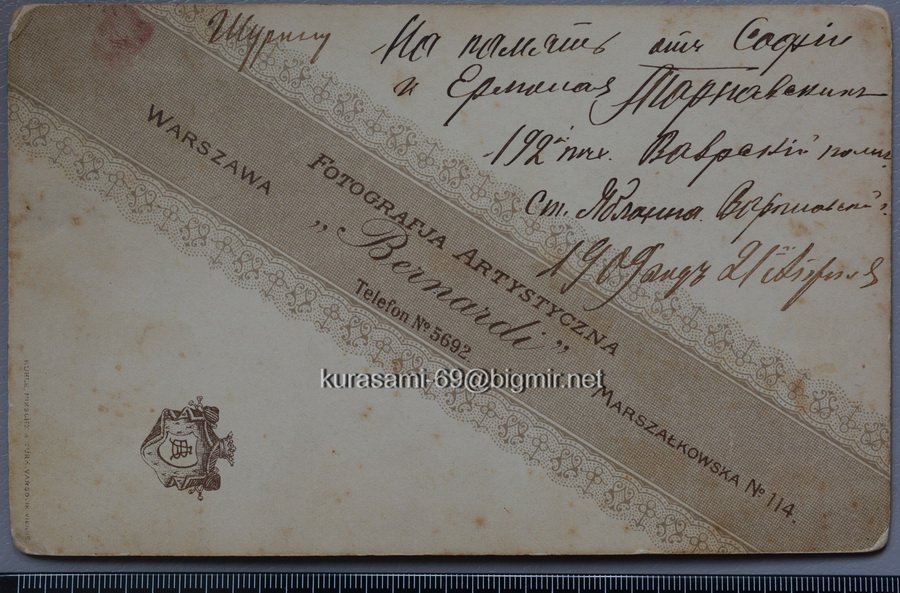 Шурину
На память отъ Софіи
и Ермолая Тарнавскихъ
192й пѣх. Ваврскій полкъ
ст. Яблонна Варшавской г.
1909 годъ 21 Апрѣля
WARSZAWA
FOTOGRAFJA ARTYSTYCZNA
„Bernardi”
Telefon № 5692.
MARSZAŁKOWSKA № 114.
kurasami-69@bigmir.net